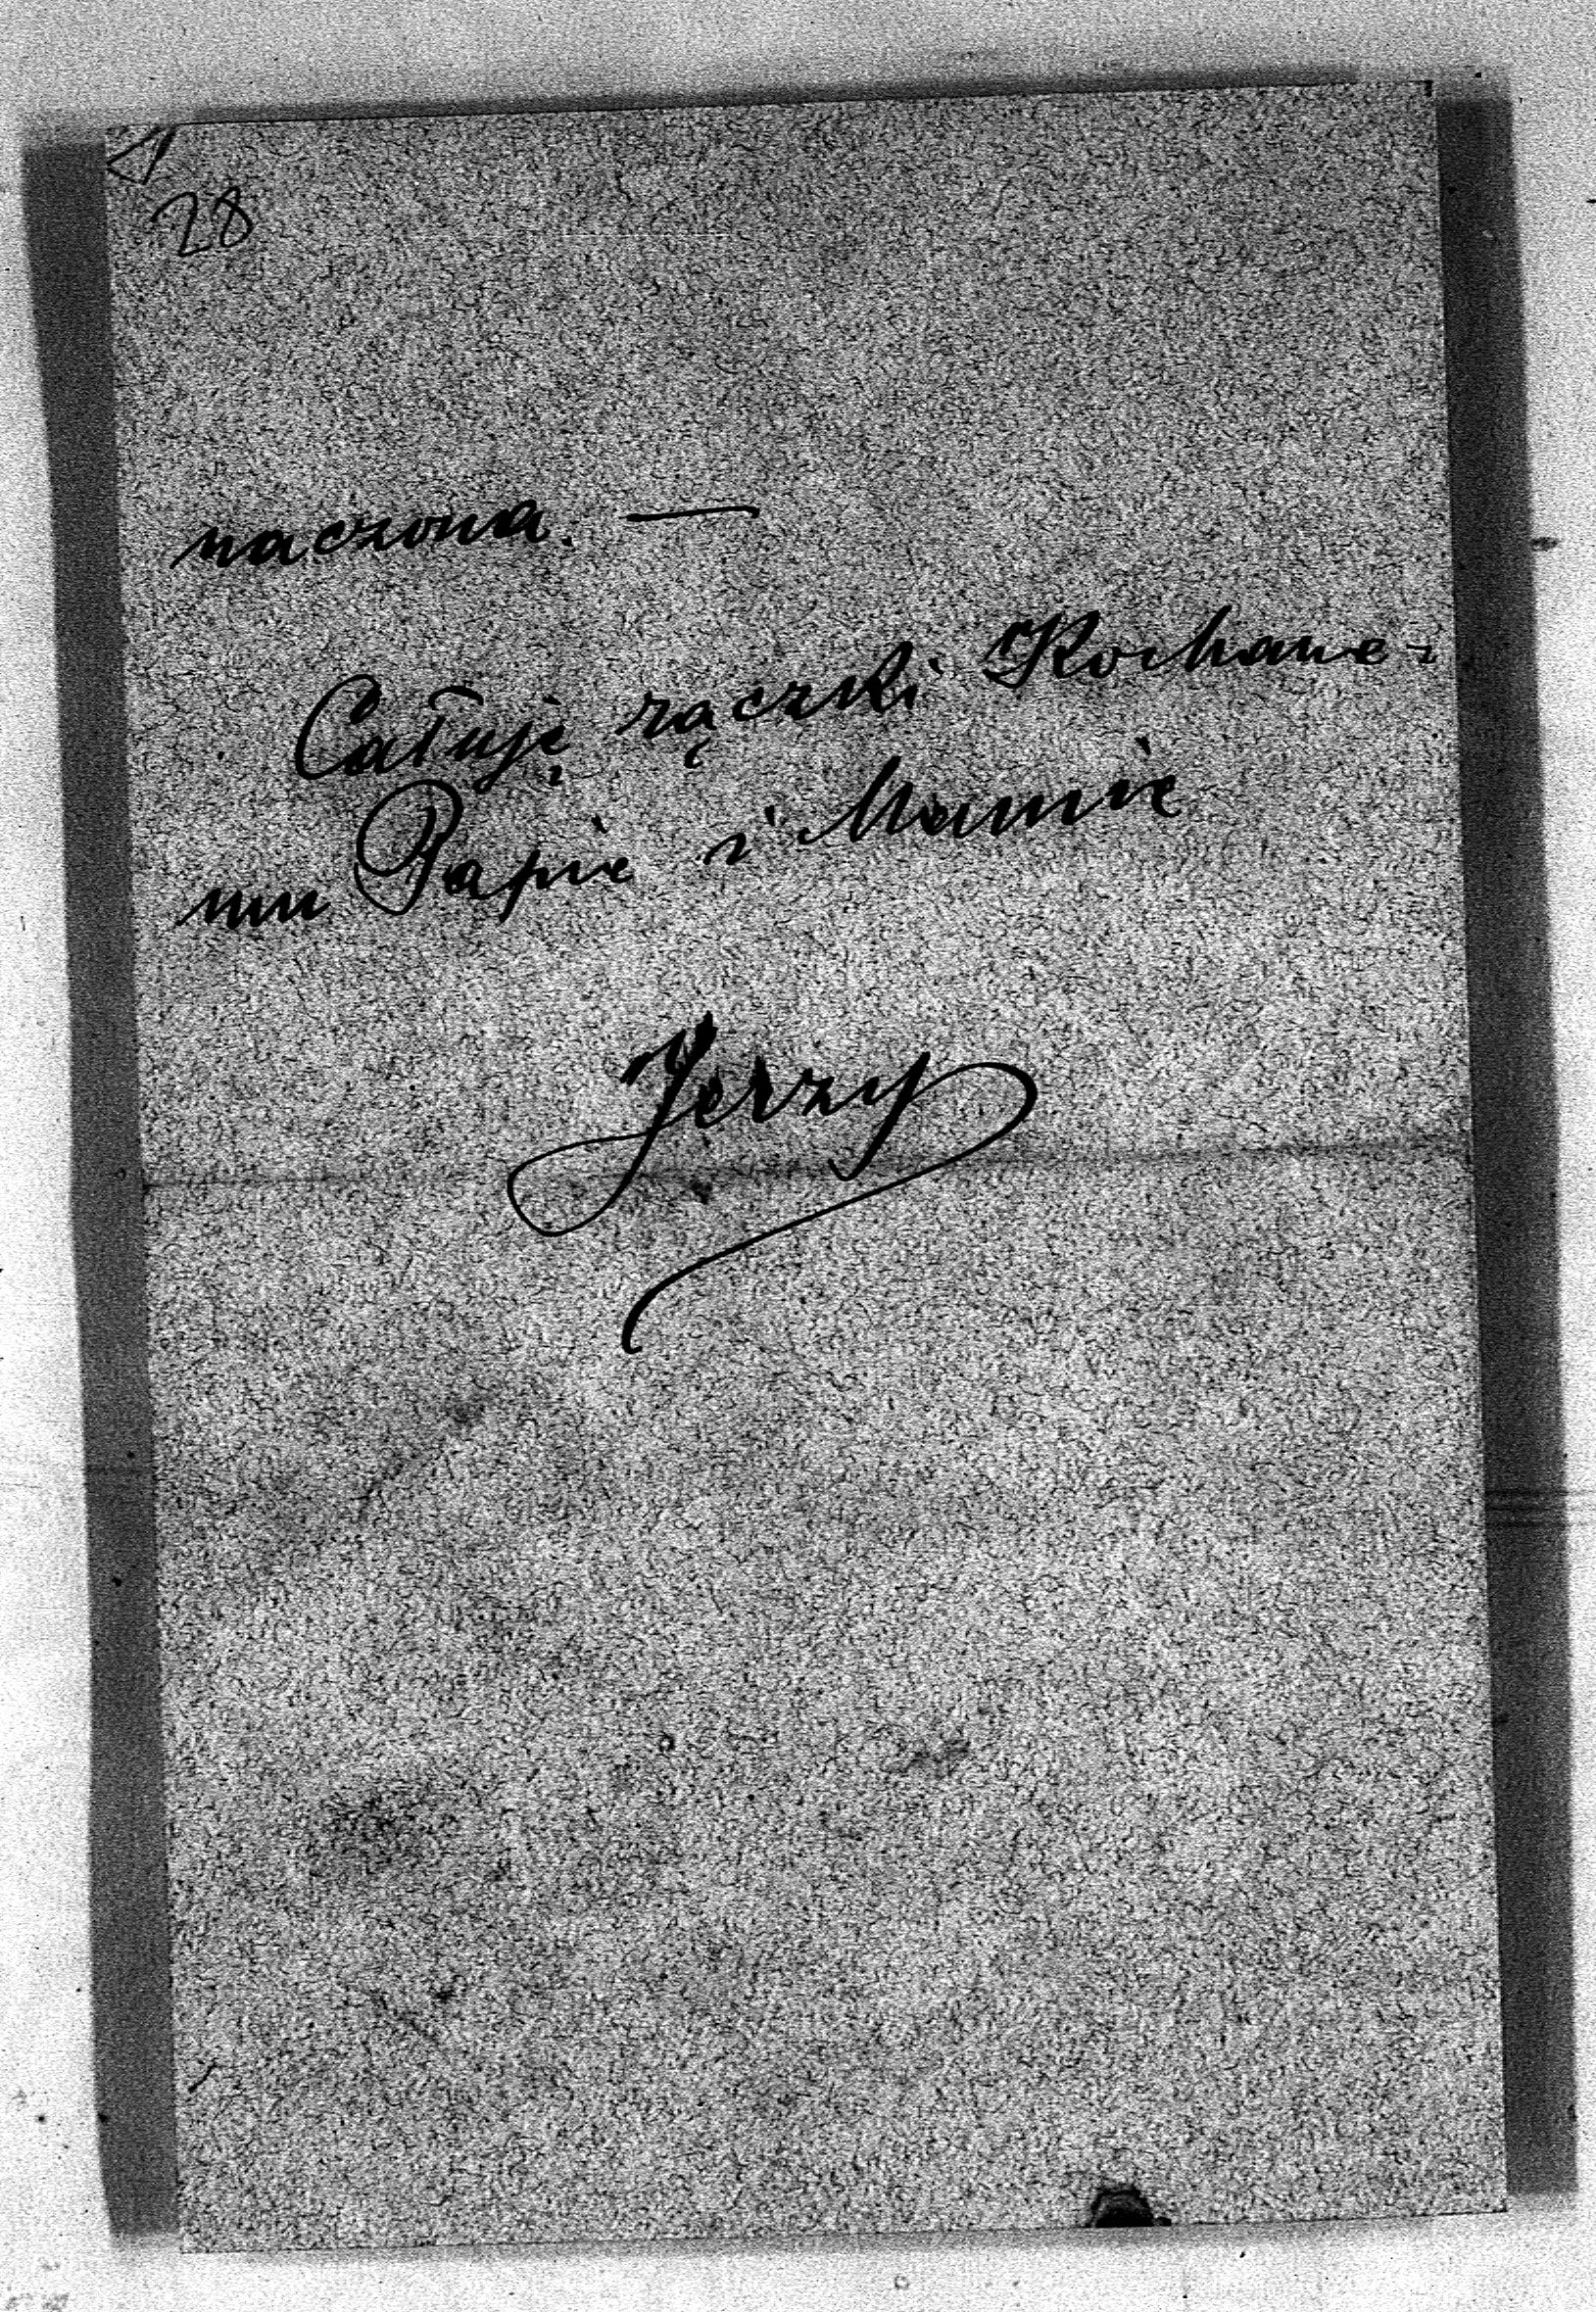 28
naczona. —
Całuję rączki Kochane-
mu Papie i Mamie
Jerzy